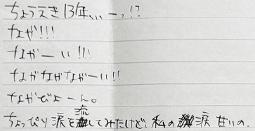 ちょうえき13年、、、ーッ!?
ながい!!!
ながーい!!!
ながながながーい!!!
ながでよーん。
ちょっぴり涙を流してみたけど、私の涙 甘いの。